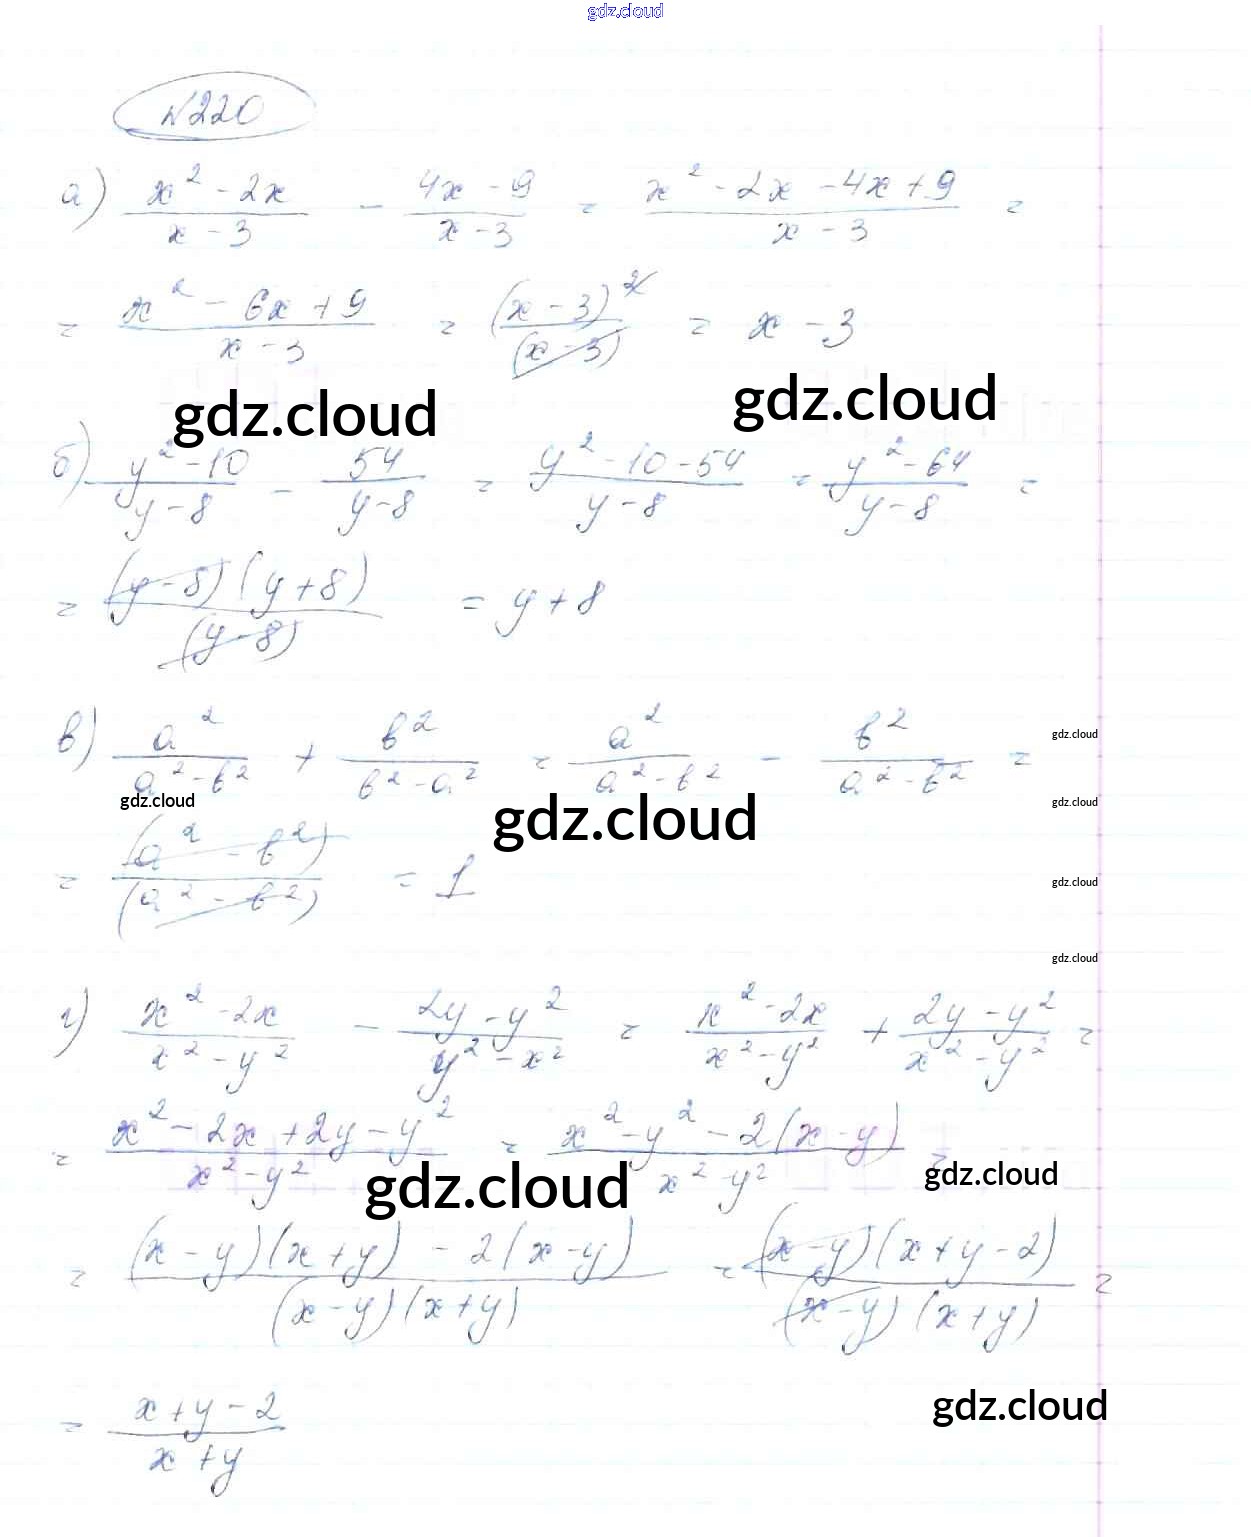 gdz.cloud
№220
а) (x² - 2x)/(x - 3) - (4x - 9)/(x - 3) = (x² - 2x - 4x + 9)/(x - 3) =
= (x² - 6x + 9)/(x - 3) = (x - 3)²/(x - 3) = x - 3
gdz.cloud gdz.cloud
б) (y² - 10)/(y - 8) - 54/(y - 8) = (y² - 10 - 54)/(y - 8) = (y² - 64)/(y - 8) =
= (y - 8)(y + 8)/(y - 8) = y + 8
в) a²/(a² - b²) + b²/(b² - a²) = a²/(a² - b²) - b²/(a² - b²) =
gdz.cloud
gdz.cloud gdz.cloud gdz.cloud
= (a² - b²)/(a² - b²) = 1
gdz.cloud
gdz.cloud
г) (x² - 2x)/(x² - y²) - (2y - y²)/(y² - x²) = (x² - 2x)/(x² - y²) + (2y - y²)/(x² - y²) =
= (x² - 2x + 2y - y²)/(x² - y²) = (x² - y² - 2(x - y))/(x² - y²) =
gdz.cloud gdz.cloud
= ((x - y)(x + y) - 2(x - y))/((x - y)(x + y)) = (x - y)(x + y - 2)/((x - y)(x + y)) =
= (x + y - 2)/(x + y)
gdz.cloud